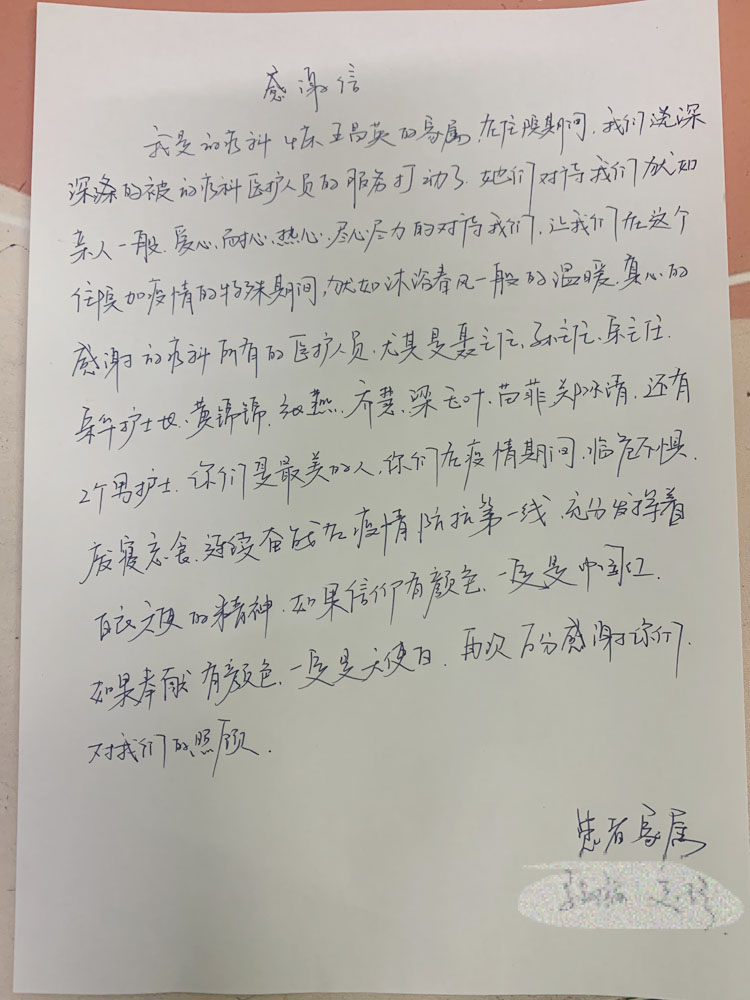 感谢信
我是内分泌科 4床 王昌英的家属,在住院期间,我们说深
深深的被内分泌科医护人员的服务打动了.她们对待我们犹如
亲人一般.爱心、耐心、热心、尽心尽力的对待我们,让我们在这个
住院加疫情的特殊期间,犹如沐浴春风一般的温暖.真心的
感谢 所有的医护人员.尤其是聂主任、孙主任、主任.
护士长、黄锦锦、燕、齐慧、梁玉叶、苗菲、郑冰清.还有
2个男护士.你们是最美的人,你们在疫情期间,临危不惧.
废寝忘食.连续奋战在疫情防抗第一线,充分发挥着
白衣天使的精神.如果信仰有颜色.一定是中国红.
如果奉献有颜色、一定是天使白.再次万分感谢你们.
对我们的照顾.
患者家属